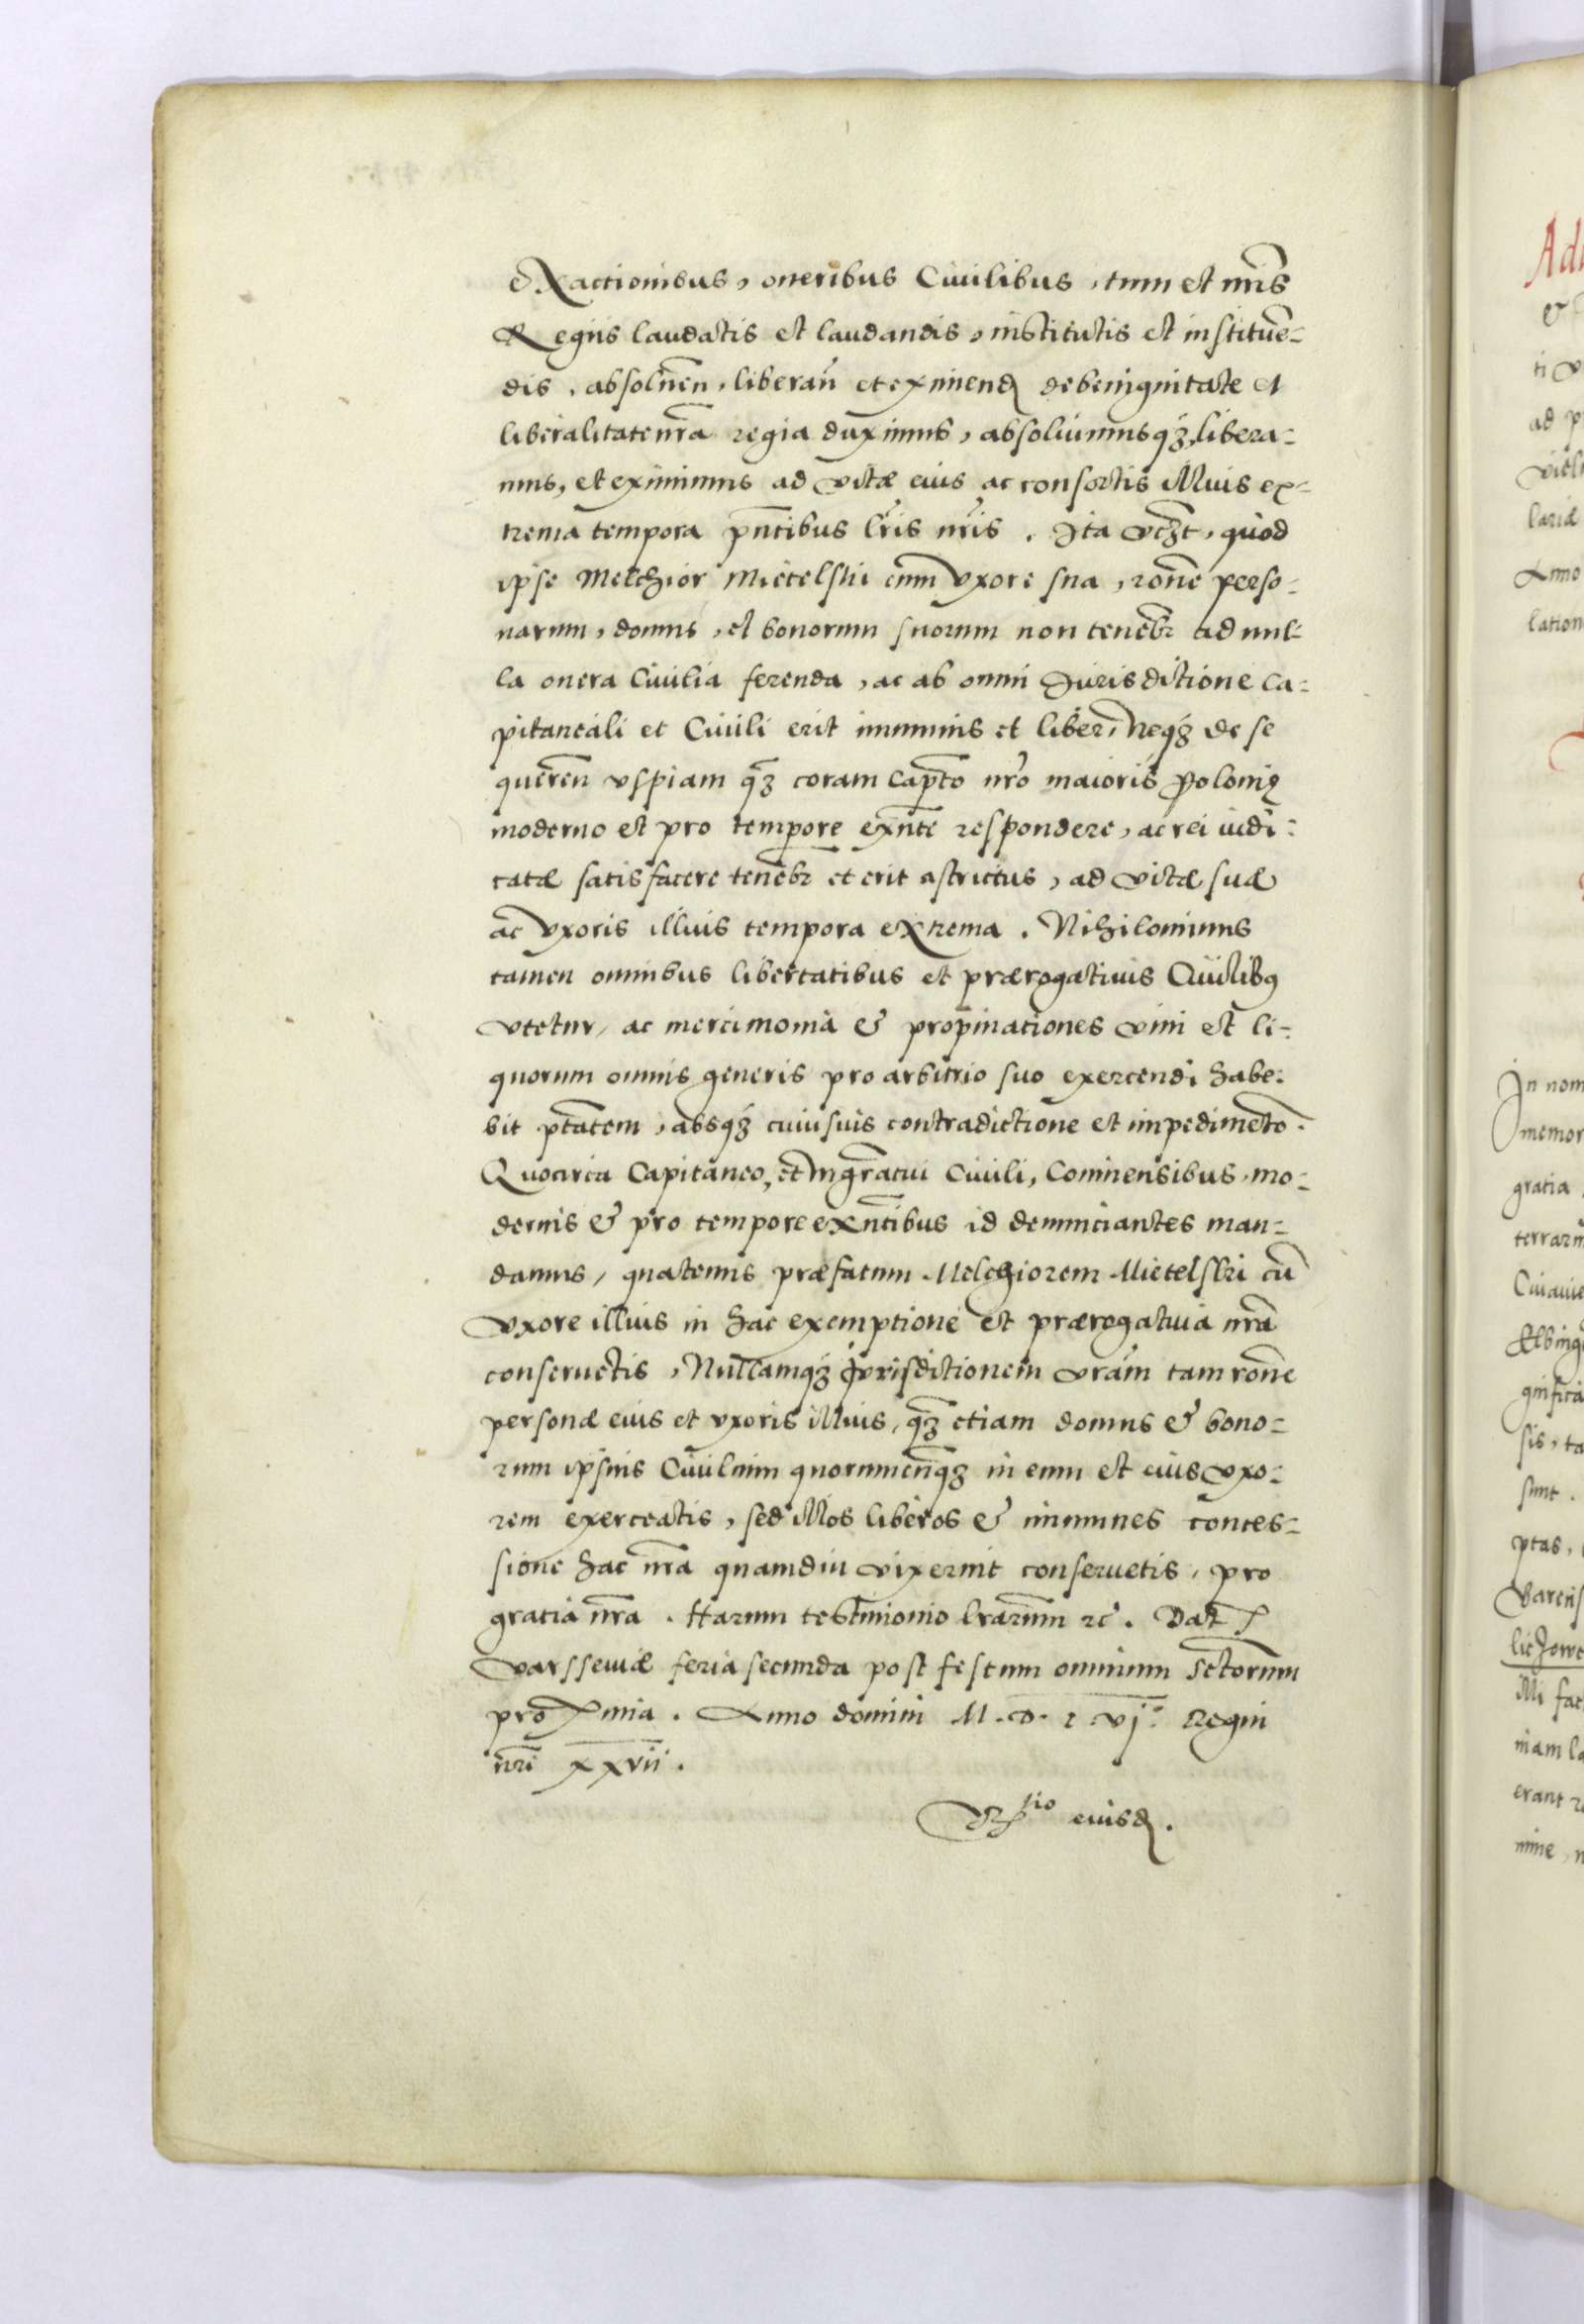 eXactionibus, oneribus Ciuilibus, tum et nr̃is
Regiis laudatis et laudandis, institutis et instituẽ-
dis, absoluen̄, liberan̄ et eximend̨ de benignitate et
liberalitate nr̃a regia duximus, absoluimusqʒ, libera-
mus, et eximimus ad vitæ eius ac consortis illius ex-
trema tempora pñtibus lr̃is nr̃is. Ita vcʒt, quod
ipse Melchior Mietelski cum vxore sua, rõne perso-
narum, domus, et bonorum suorum non teneb̃r ad nul-
la onera Ciuilia ferenda, ac ab omni Jurisdictione Ca-
pitaneali et Ciuili erit immunis et liber, Neqʒ de se
queren̄ vspiam qʒ̃ coram Capt̃o nr̃o maioris Polonię
moderno et pro tempore exñte respondere, ac rei iudi-
catæ satisfacere teneb̃r et erit astrictus, ad vitæ suæ
ac vxoris illius tempora eXtrema. Nihilominus
tamen omnibus libertatibus et prærogatiuis Ciuilibꝰ
vtetur, ac mercimonia & propinationes vini et li-
quorum omnis generis pro arbitrio suo exercendi habe-
bit pt̃atem, absqʒ cuiusuis contradictione et impedimẽto.
Quocirca Capitaneo, et mgr̃atui Ciuili, Cominensibus, mo-
dernis & pro tempore exñtibus id denunciantes man-
damus, quatenus præfatum Melchiorem Mietelski cũ
vxore illius in hac exemptione et prærogatiuia nr̃a
conseruetis, Nullamqʒ Jurisditionem vr̃am tam rõne
personæ eius et vxoris illius, qʒ̃ etiam domus & bono-
rum ipsius Ciuilium quorumcunqʒ in eum et eius vxo-
rem exerceatis, sed illos liberos & immunes conces-
sione hac nr̃a quamdiu vixerint conseruetis, pro
gratia nr̃a. Harum testimonio lr̃arum rc̃. Dat̃
Varsseuiæ feria secunda post festum omnium sctorum
proXima. Anno domini M. D. L vj. Regni
nr̃i xxvii.
Rtio eiusd̨.
Adu
&
ti v
ad p
viel
lariæ
Anno
lation
In nom
memor
gratia
terrarũ
Cuiauie
Elbing
gnifica
sis, ta
sunt.
ptas,
Varens
lichowe
illi fac
niam la
erant r
mine, n